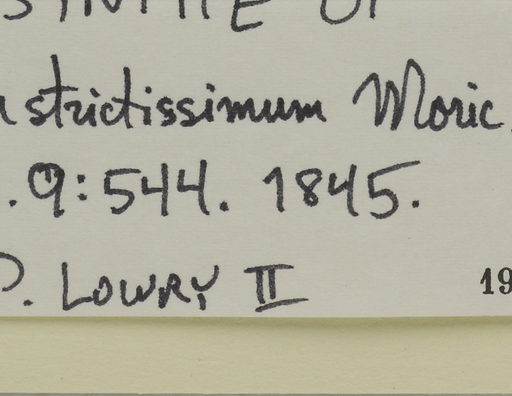 strictissimum Moric.
. 9:544. 1845.
P. LOWRY II 19